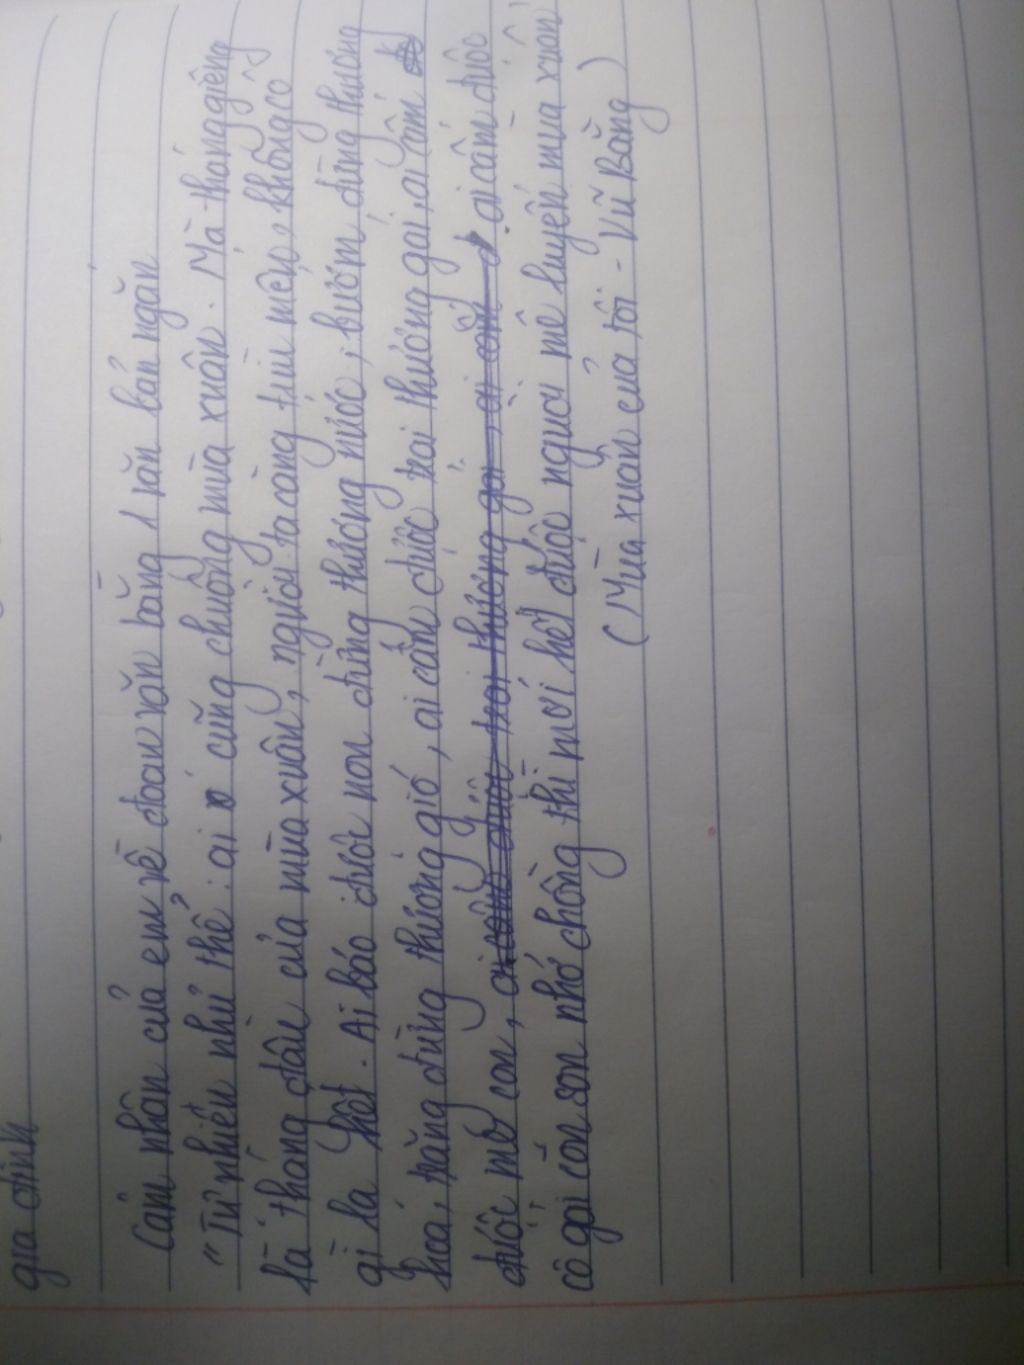 gia đình
Cảm nhận của em về đoạn văn bằng 1 văn bản ngắn
"Tự nhiên như thế : ai cũng chuộng mùa xuân. Mà tháng giêng
là tháng đầu của mùa xuân, người ta càng trìu mến, không có
gì lạ hết. Ai bảo được non đừng thương nước, bướm đừng thương
hoa, trăng đừng thương gió, ai cấm được trai thương gái, ai cấm
được mẹ con, ai cấm được
cô gái còn son nhớ chồng thì mới hết được người mê luyến mùa xuân
(Mùa xuân của tôi - Vũ Bằng)